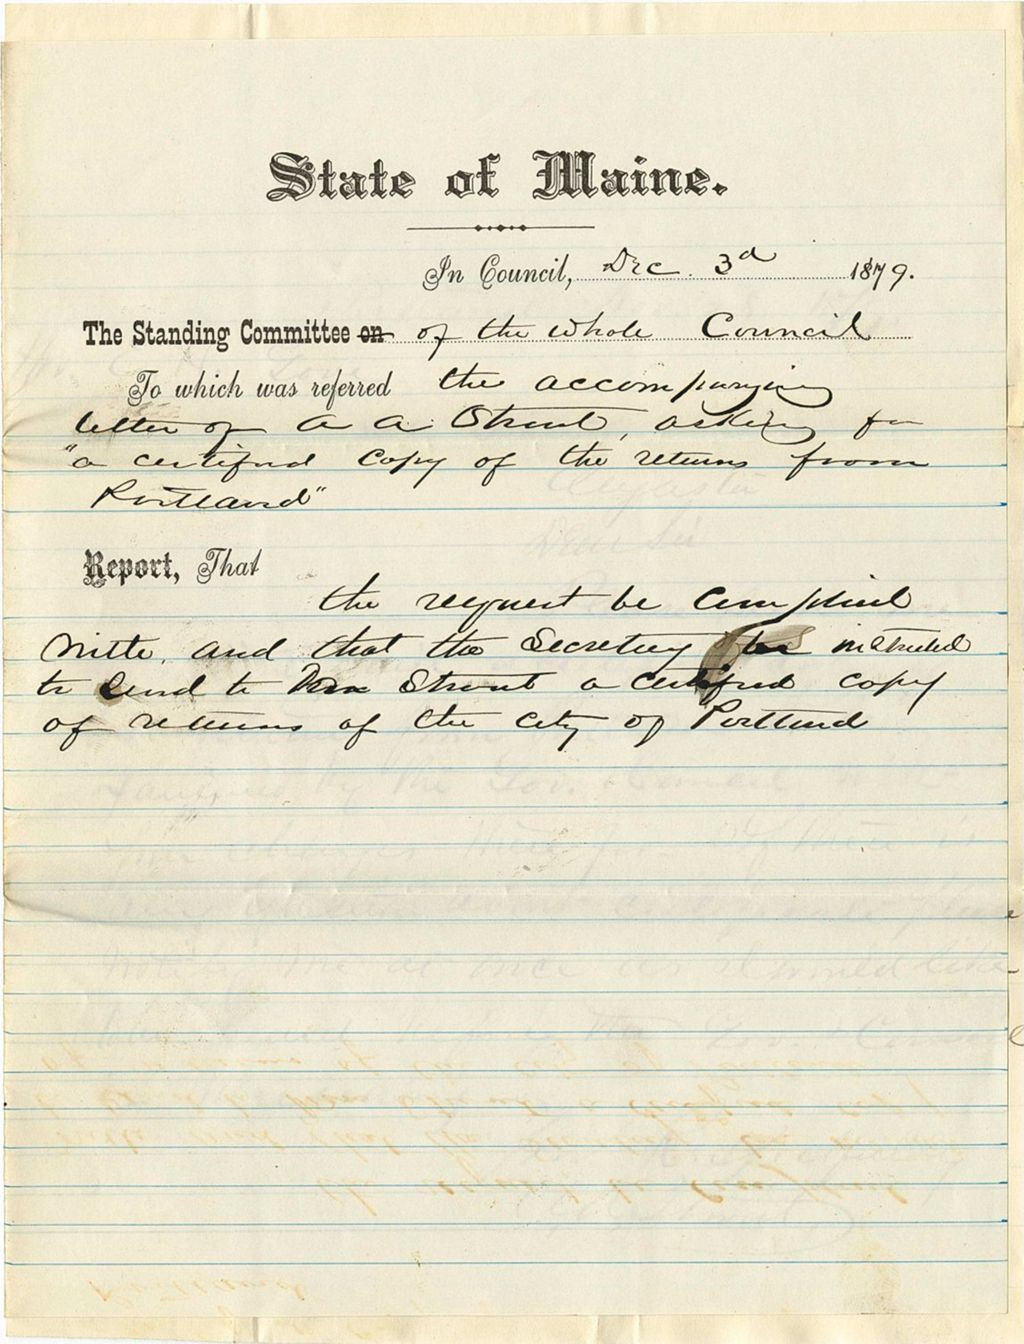 State of Maine.
In Council, Dec. 3d 1879.
The Standing Committee on of the whole Council
To which was referred the accompanying
letter of A A. Strout, asking for
"a certified copy of the returns from
Portland"
Report, That
the request be complied
with, and that the Secretary be instructed
to send to Strout a certified copy
of returns of the city of Portland